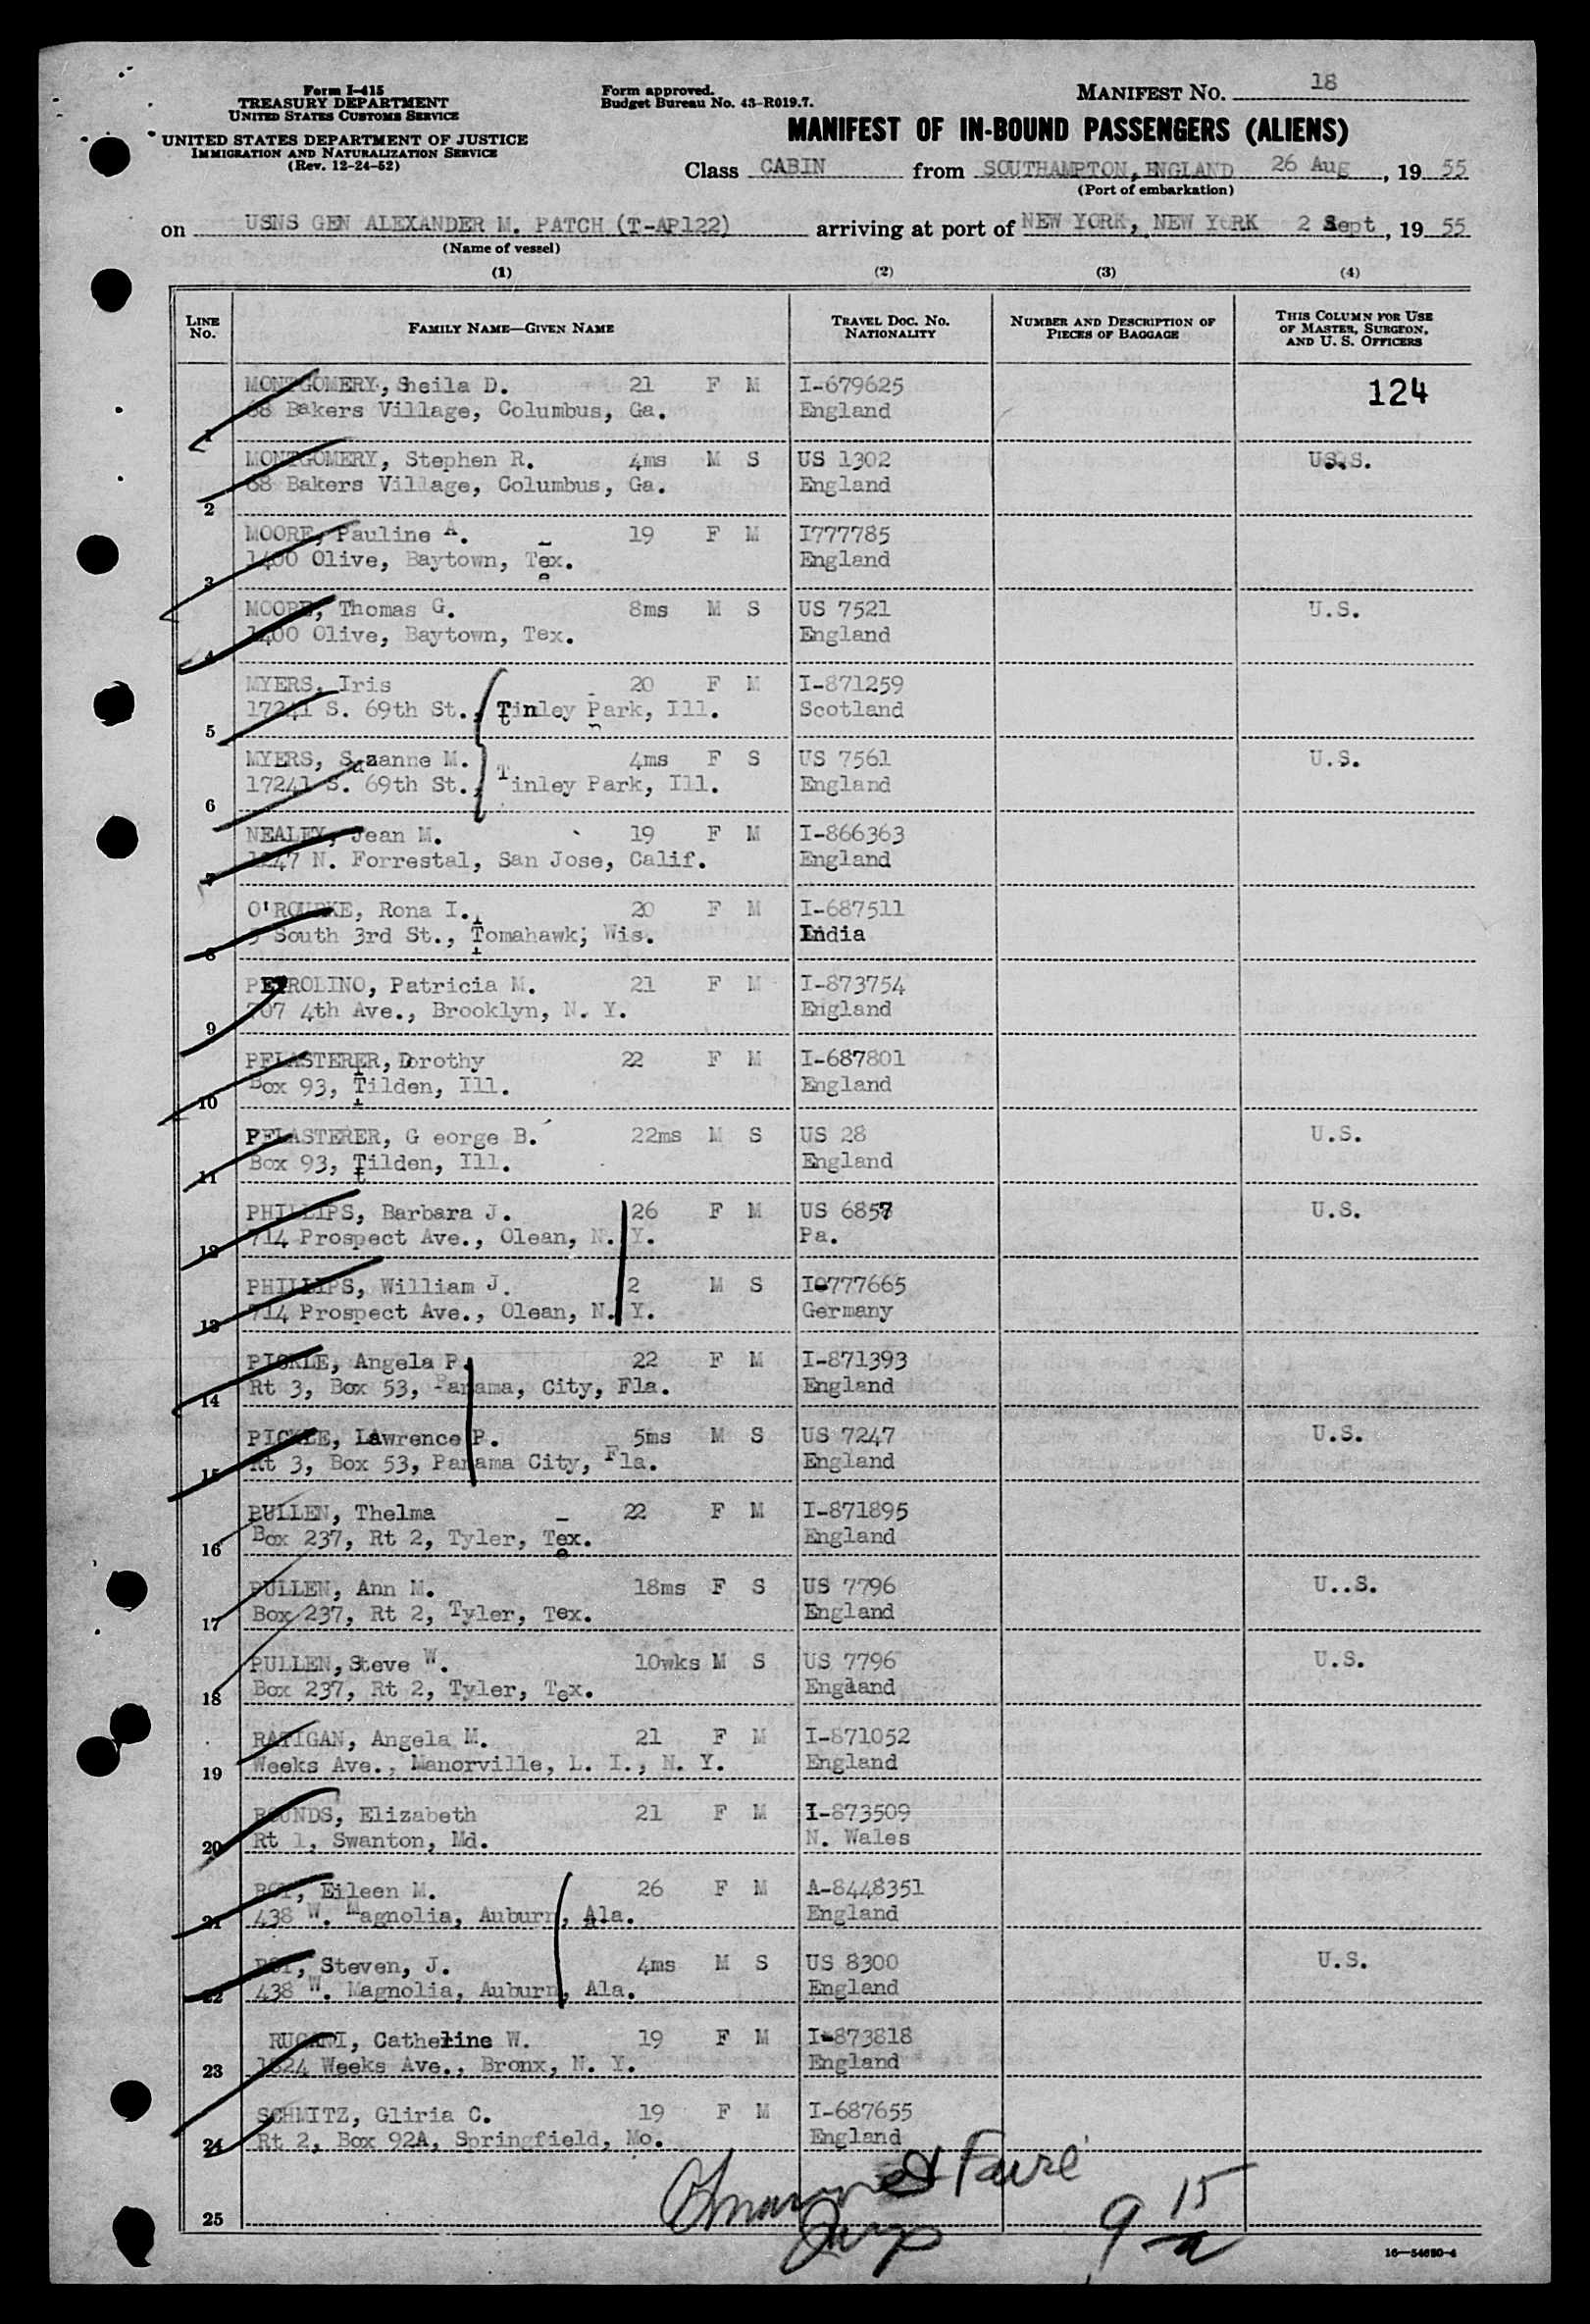 Form I-415
TREASURY DEPARTMENT
UNITED STATES CUSTOMS SERVICE
UNITED STATES DEPARTMENT OF JUSTICE
IMMIGRATION AND NATURALIZATION SERVICE
(Rev. 12-24-52)
Form approved.
Budget Bureau No. 43-R019.7.
MANIFEST NO. 18
MANIFEST OF IN-BOUND PASSENGERS (ALIENS)
Class CABIN from SOUTHAMPTON, ENGLAND 26 Aug, 19 55
(Port of embarkation)
on USNS GEN ALEXANDER M. PATCH (T-AP122) arriving at port of NEW YORK, NEW YORK 2 Sept, 19 55
(Name of vessel)
(1) (2) (3) (4)
LINE NO. FAMILY NAME—GIVEN NAME TRAVEL DOC. NO. NATIONALITY NUMBER AND DESCRIPTION OF PIECES OF BAGGAGE THIS COLUMN FOR USE OF MASTER, SURGEON, AND U. S. OFFICERS
MONTGOMERY, Sheila D. 21 F M I-679625 124
1 68 Bakers Village, Columbus, Ga. England
MONTGOMERY, Stephen R. 4ms M S US 1302 U.S.S.
2 68 Bakers Village, Columbus, Ga. England
MOORE, Pauline A. 19 F M I777785
3 1400 Olive, Baytown, Tex. England
MOORE, Thomas G. 8ms M S US 7521 U.S.
4 1400 Olive, Baytown, Tex. England
MYERS, Iris 20 F M I-871259
5 17241 S. 69th St., Tinley Park, Ill. Scotland
MYERS, Suzanne M. 4ms F S US 7561 U.S.
6 17241 S. 69th St., Tinley Park, Ill. England
NEALEY, Jean M. 19 F M I-866363
7 1247 N. Forrestal, San Jose, Calif. England
O'ROURKE, Rona I. 20 F M I-687511
8 South 3rd St., Tomahawk; Wis. India
PETROLINO, Patricia M. 21 F M I-873754
9 707 4th Ave., Brooklyn, N. Y. England
PFLASTERER, Dorothy 22 F M I-687801
10 Box 93, Tilden, Ill. England
PFLASTERER, G eorge B. 22ms M S US 28 U.S.
11 Box 93, Tilden, Ill. England
PHILLIPS, Barbara J. 26 F M US 6857 U.S.
12 714 Prospect Ave., Olean, N. Y. Pa.
PHILLIPS, William J. 2 M S I0777665
13 714 Prospect Ave., Olean, N. Y. Germany
PICKLE, Angela P. 22 F M I-871393
14 Rt 3, Box 53, Panama, City, Fla. England
PICKLE, Lawrence P. 5ms M S US 7247 U.S.
15 Rt 3, Box 53, Panama City, Fla. England
PULLEN, Thelma 22 F M I-871895
16 Box 237, Rt 2, Tyler, Tex. England
PULLEN, Ann M. 18ms F S US 7796 U..S.
17 Box 237, Rt 2, Tyler, Tex. England
PULLEN, Steve W. 10wks M S US 7796 U.S.
18 Box 237, Rt 2, Tyler, Tex. England
RATIGAN, Angela M. 21 F M I-871052
19 Weeks Ave., Manorville, L. I., N. Y. England
ROUNDS, Elizabeth 21 F M I-873509
20 Rt 1, Swanton, Md. N. Wales
ROY, Eileen M. 26 F M A-8448351
21 438 W. Magnolia, Auburn, Ala. England
ROY, Steven, J. 4ms M S US 8300 U.S.
22 438 W. Magnolia, Auburn, Ala. England
Catherine W. 19 F M I-873818
23 1824 Weeks Ave., Bronx, N. Y. England
SCHMITZ, Gliria C. 19 F M I-687655
24 Rt 2, Box 92A, Springfield, Mo. England
25
9 15 a
16—54680-4